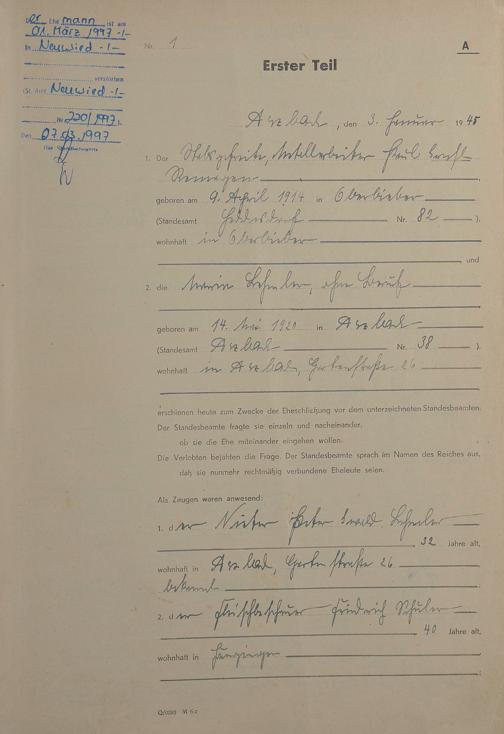 Der Ehe mann ist am
01. März 1997 -/-
in Neuwied -/-
verstorben
(St. Amt Neuwied -/-
Nr. 220/1997).
Den 07.03.1997
Nr. 1
A
Erster Teil
, den 3. Januar 1945
1. Der
Remagen
geboren am 9. April 1914 in Oberbieber
(Standesamt Heddesdorf Nr. 82 ).
wohnhaft in Oberbieber
und
2. die Maria , ohne Beruf
geboren am 14. Mai 1920 in
(Standesamt Nr. 38 ).
wohnhaft in , Gartenstraße 26
erschienen heute zum Zwecke der Eheschließung vor dem unterzeichneten Standesbeamten.
Der Standesbeamte fragte sie einzeln und nacheinander,
ob sie die Ehe miteinander eingehen wollen.
Die Verlobten bejahten die Frage. Der Standesbeamte sprach im Namen des Reiches aus,
daß sie nunmehr rechtmäßig verbundene Eheleute seien.
Als Zeugen waren anwesend:
1. der Peter Ewald
32 Jahre alt,
wohnhaft in , Gartenstraße 26
bekannt
2. der Fleischbeschauer Friedrich
40 Jahre alt,
wohnhaft in